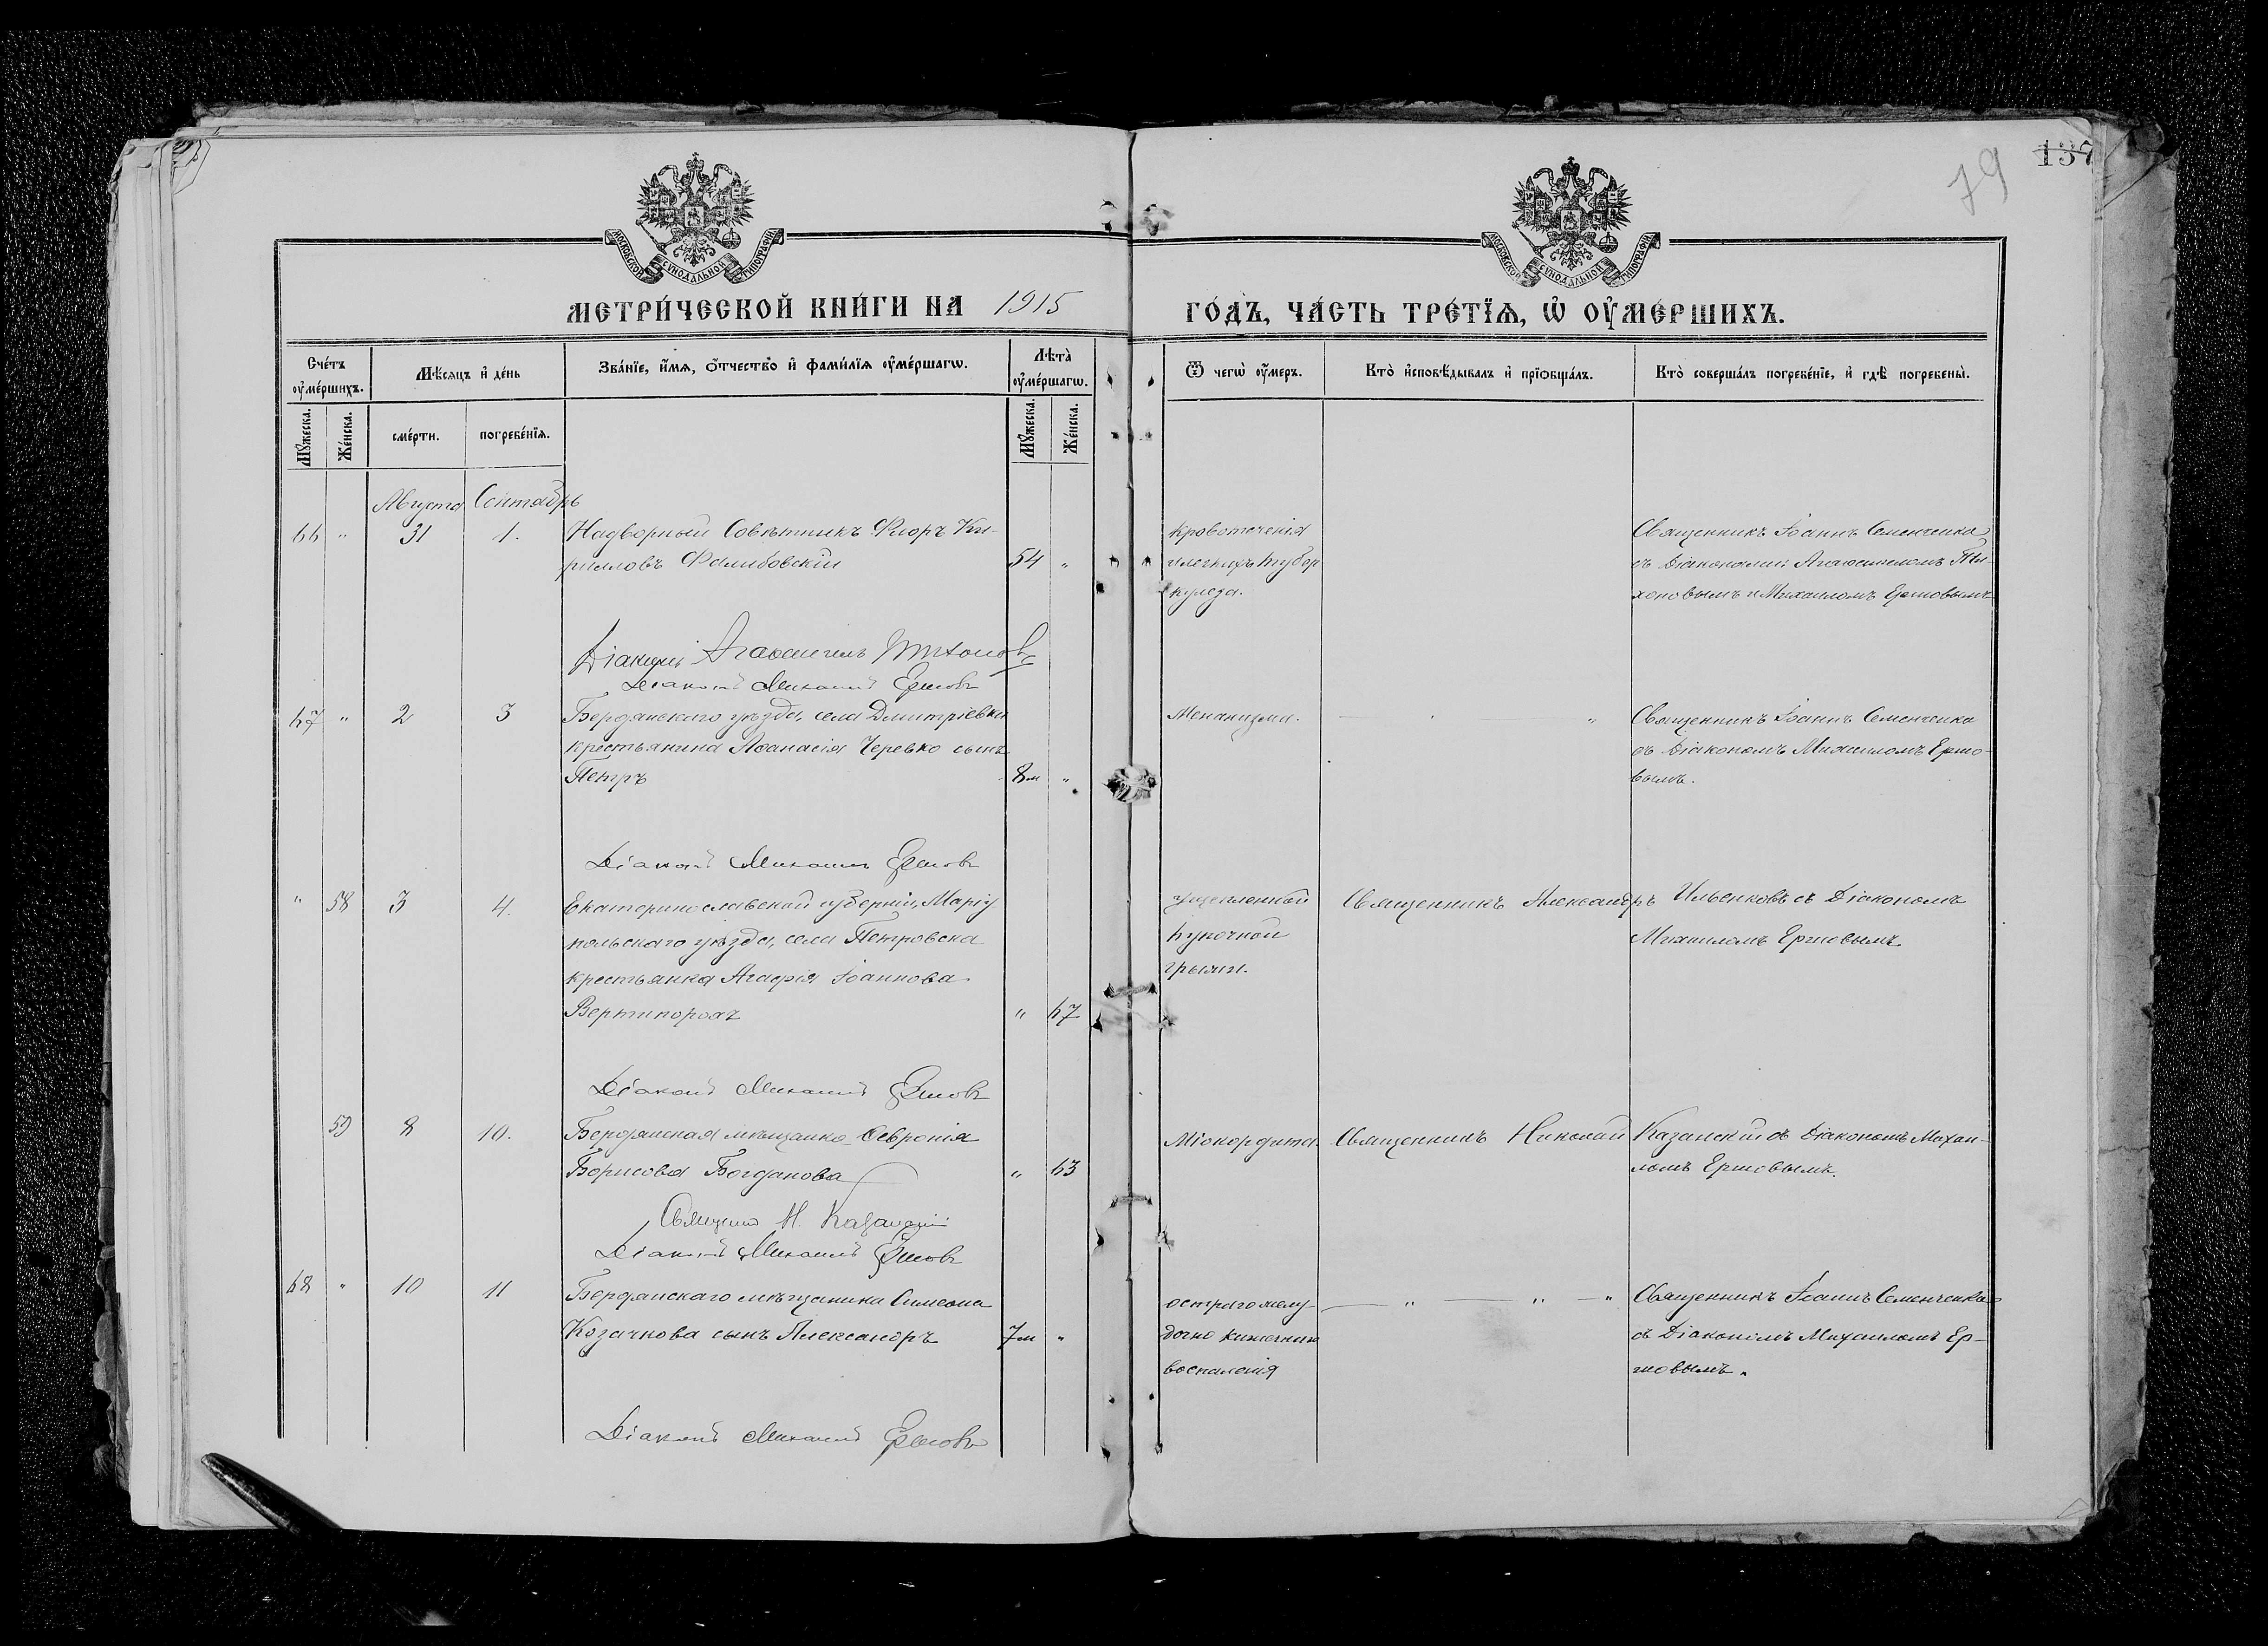 79
137
МОСКОВСКОЙ СѴНОДАЛЬНОЙ ТИПОГРАФІИ
МОСКОВСКОЙ СѴНОДАЛЬНОЙ ТИПОГРАФІИ
МЕТРИ́ЧЕСКОЙ КНИ́ГИ НА 1915 ГО́ДЪ, ЧА́СТЬ ТРЕ́ТЇѦ, Ѡ ОУ҆МЕ́РШИХЪ.
Сче́тъ оу҆ме́ршихъ.
Мѣ́сѧцъ и҆ де́нь
Зва́нїе, и҆́мѧ, ѻ҆́тчество и҆ фами́лїѧ оу҆ме́ршагѡ.
Лѣта̀ оу҆ме́ршагѡ.
Ѿ чегѡ̀ оу҆́меръ.
Кто̀ и҆сповѣ́дывалъ и҆ прїѡбща́лъ.
Кто̀ соверша́лъ погребе́нїе, и҆ гдѣ̀ погребены̀.
Мꙋ́жеска.
Же́нска.
сме́рти.
погребе́нїѧ.
Мꙋ́жеска.
Же́нска.
Августа Сентябрь
66 " 31 1. Надворный Совѣтникъ Флоръ Ки-
рилловъ Фалибовскій 54 "
кровотеченія
легкихъ тубер
кулеза.
Священникъ Іоаннъ Семенченко
съ Діаконами Агаѳангеломъ Ти-
хоновымъ и Михаиломъ Ершовымъ
Діаконъ Агаѳангелъ Тихоновъ
Діаконъ Михаилъ Ершовъ
67 " 2 3 Бердянскаго уѣзда, села Дмитріевки
крестьянина Аѳанасія Черевко сынъ
Петръ 8м "
Священникъ Іоаннъ Семенченко
съ Діакономъ Михаиломъ Ершо-
вымъ.
Діаконъ Михаилъ Ершовъ
" 58 3 4. Екатеринославской губерніи, Маріу
польскаго уѣзда, села Петровска
крестьянка Агафія Іоаннова
Вертипорохъ " 67
ущемленной
пупочной
грыжи.
Священникъ Александръ Ильенковъ съ Діакономъ
Михаиломъ Ершовымъ.
Діаконъ Михаилъ Ершовъ
59 8 10. Бердянская мѣщанка Ѳевронія
Борисова Богданова " 63
Міокордита. Священникъ Николай Казанскій съ Діакономъ Михаи-
ломъ Ершовымъ.
Священ Н. Казанскій
Діаконъ Михаилъ Ершовъ
68 " 10 11 Бердянскаго мѣщанина Симеона
Козачкова сынъ Александръ 7м "
остраго желу-
дочно кишечнаго
воспаленія
— " — " — "
Священникъ Іоаннъ Семенченко
съ Діакономъ Михаиломъ Ер-
шовымъ.
Діаконъ Михаилъ Ершовъ